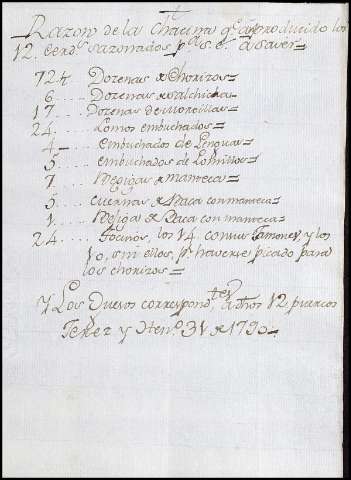 Razon de la chacina q.e an producido los
12. Cerd.s sazonados p.a S. E. a saver
72 Dozenas de Chorizos=
6.... Dozenas de salchichas
17... Dozenas de Morcillas
24.... Lomos embuchados=
4... embuchados de Lengua=
5.... embuchados de Lomillos=
7.... Begigas de manteca=
5.... cuernas de Baca con manteca=
1.... Begiga de Baca con manteca=
24.... tocinos, los 14. con sus Jamones, y los
10, sin ellos, p.r haverse picado para
los chorizos=
Y Los Huesos correspond.tes a dhos 12 puercos
Xerez y Hen.o 31 de 1790=